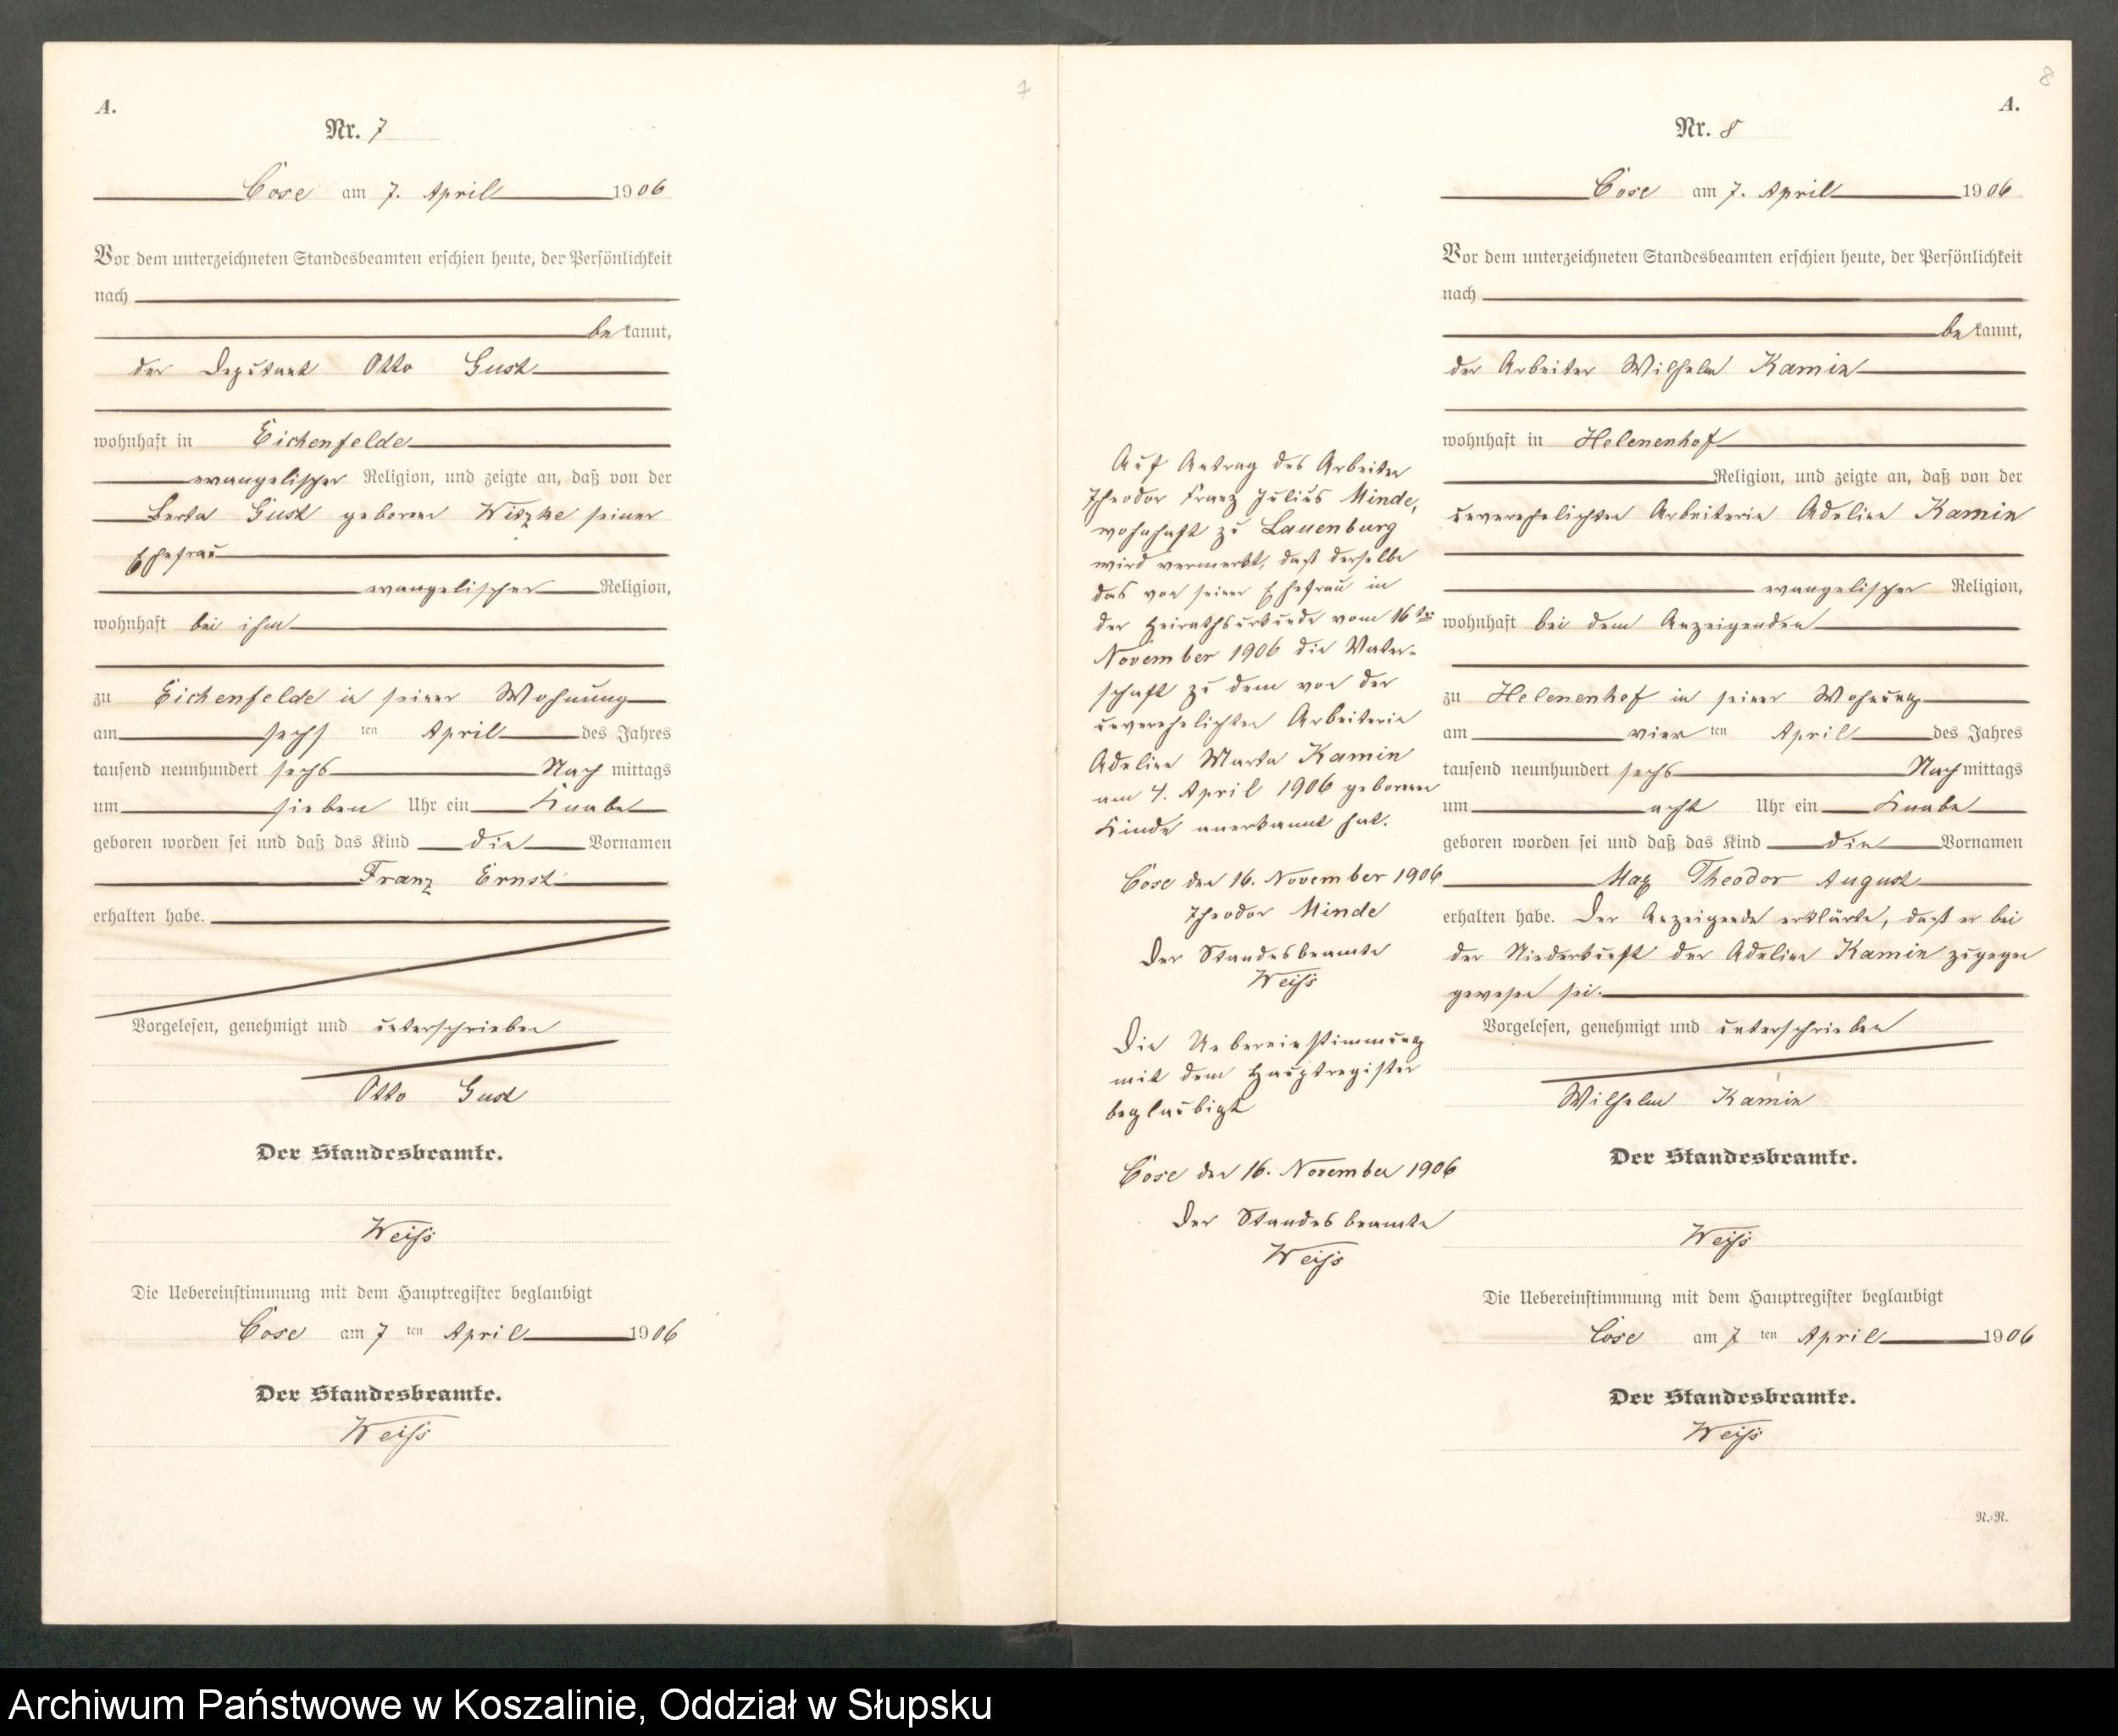 7
A.
Nr. 7
Cose am 7. April 1906
Vor dem unterzeichneten Standesbeamten erschien heute, der Persönlichkeit
nach
be kannt,
der Deputant Otto Gust
wohnhaft in Eichenfelde
evangelischer Religion, und zeigte an, daß von der
Berta Gust geborene Wiszke seiner
Ehefrau
evangelischer Religion,
wohnhaft bei ihm
zu Eichenfelde in seiner Wohnung
am sechs ten April des Jahres
tausend neunhundert sechs Nach mittags
um sieben Uhr ein Knabe
geboren worden sei und daß das Kind die Vornamen
Franz Ernst
erhalten habe.
Vorgelesen, genehmigt und unterschrieben
Otto Gust
Der Standesbeamte.
Weiß
Die Uebereinstimmung mit dem Hauptregister beglaubigt
Cose am 7 ten April 1906
Der Standesbeamte.
Weiß
8
A.
Nr. 8
Cose am 7. April 1906
Vor dem unterzeichneten Standesbeamten erschien heute, der Persönlichkeit
nach
be kannt,
der Arbeiter Wilhelm Kamin
wohnhaft in Helenenhof
Religion, und zeigte an, daß von der
unverehelichten Arbeiterin Adeline Kamin
evangelischer Religion,
wohnhaft bei dem Anzeigenden
zu Helenenhof in seiner Wohnung
am vier ten April des Jahres
tausend neunhundert sechs Nach mittags
um acht Uhr ein Knabe
geboren worden sei und daß das Kind die Vornamen
Max Theodor August
erhalten habe. Der Anzeigende erklärte, daß er bei
der Niederkunft der Adeline Kamin zugegen
gewesen sei.
Vorgelesen, genehmigt und unterschrieben
Wilhelm Kamin
Der Standesbeamte.
Weiß
Die Uebereinstimmung mit dem Hauptregister beglaubigt
Cose am 7 ten April 1906
Der Standesbeamte.
Weiß
R.-R.
Auf Antrag des Arbeiters
Theodor Franz Julius Minde,
wohnhaft zu Lauenburg
wird vermerkt, daß derselbe
das von seiner Ehefrau in
der Heirathsurkunde vom 16ten
November 1906 die Vater-
schaft zu dem von der
unverehelichten Arbeiterin
Adeline Marta Kamin
am 4. April 1906 geborenen
Kinde anerkannt hat.
Cose den 16. November 1906
Theodor Minde
Der Standesbeamte
Weiß
Die Uebereinstimmung
mit dem Hauptregister
beglaubigt
Cose den 16. November 1906
Der Standesbeamte
Weiß
Archiwum Państwowe w Koszalinie, Oddział w Słupsku